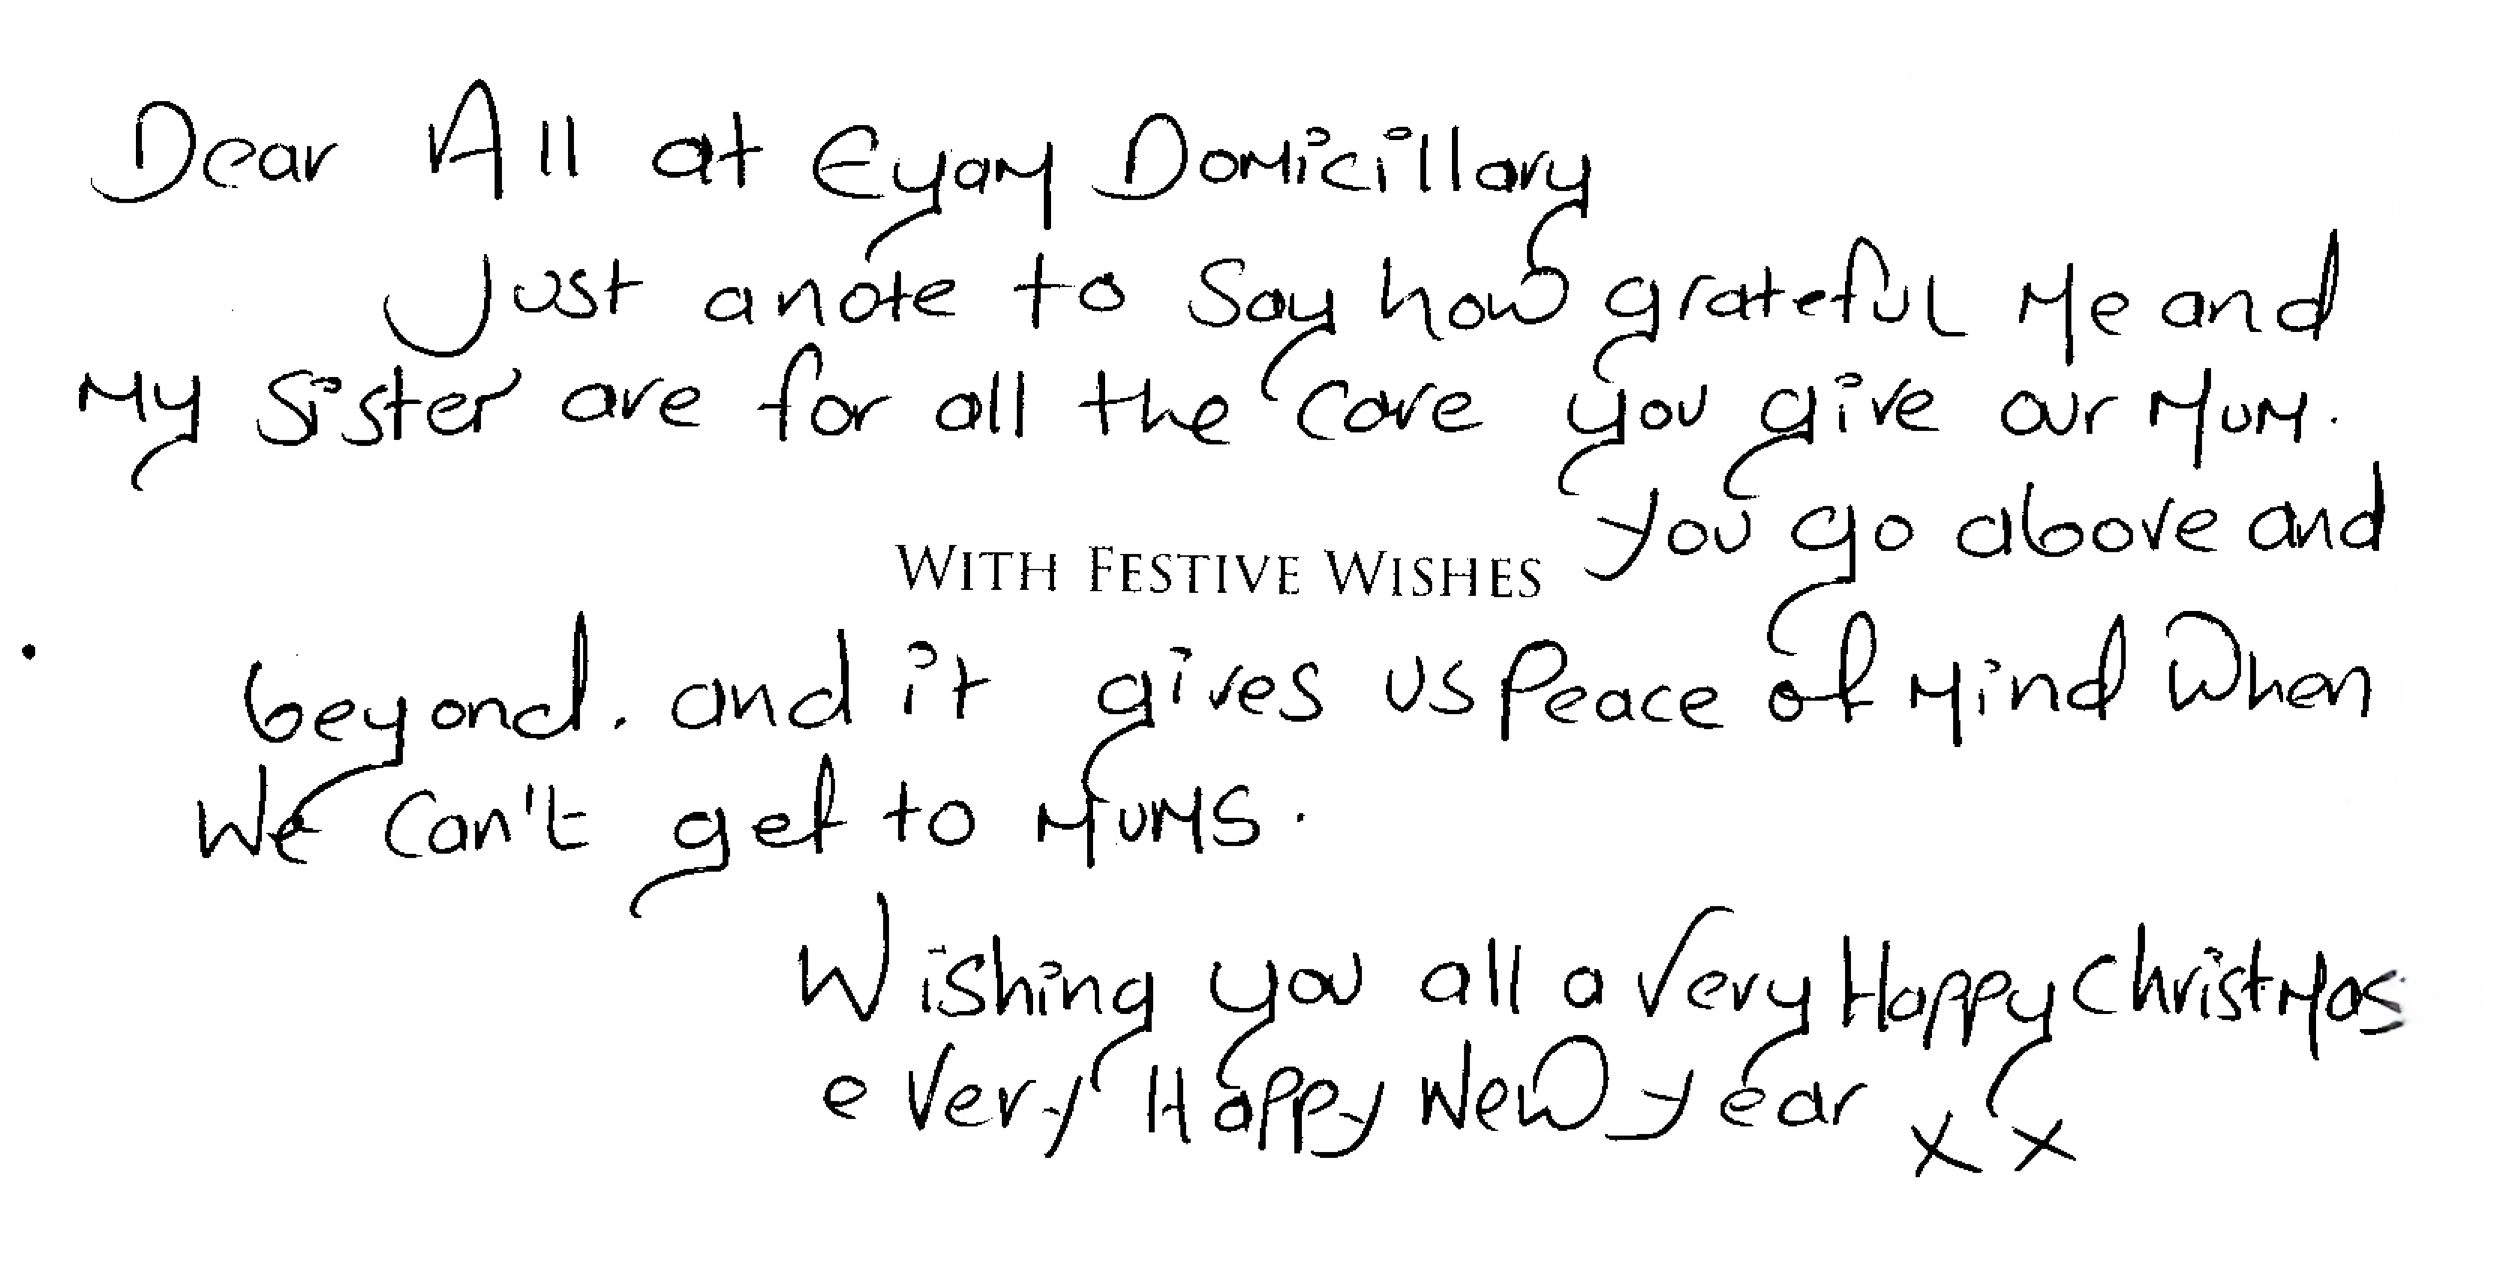 Dear All at Eyam Domicillary
Just a note to say how grateful me and
my sister are for all the care you give our mum.
You go above and
WITH FESTIVE WISHES
beyond. and it gives us peace of mind when
we can't get to mums.
Wishing you all a very Happy Christmas
e very Happy New year x x